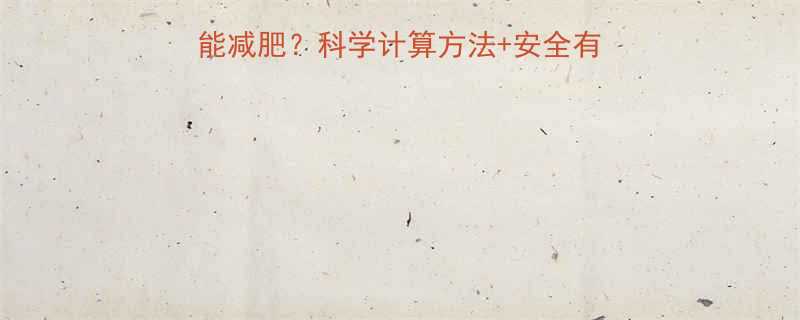 能减肥？科学计算方法+安全有